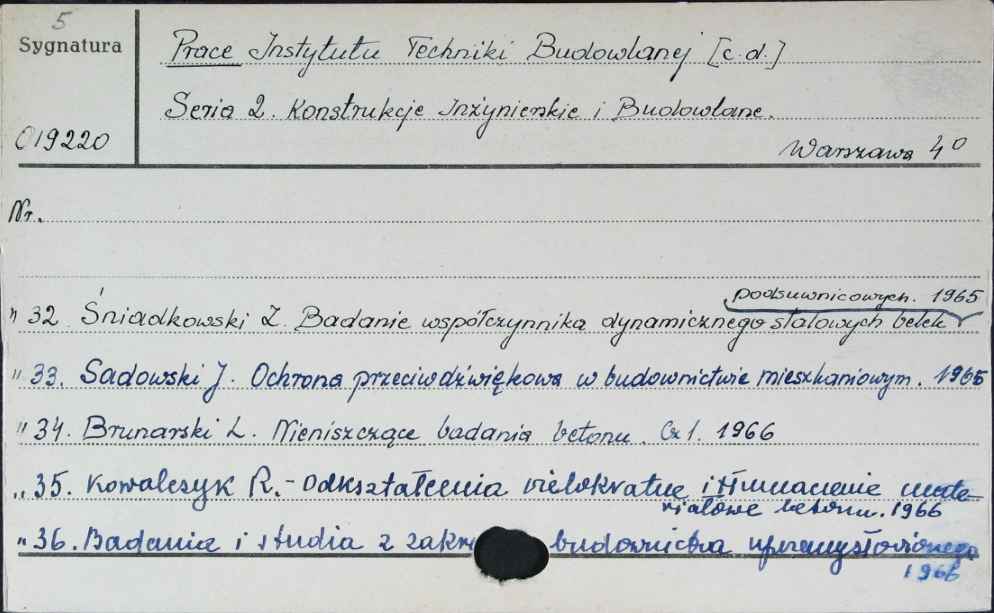 5
Sygnatura
019220
Prace Instytutu Techniki Budowlanej [c.d.]
Seria 2. Konstrukcje Inżynierskie i Budowlane.
Warszawa 4°
Nr.
podsuwnicowych. 1965
" 32 Śniadkowski Z. Badanie współczynnika dynamicznego stalowych belek
" 33. Sadowski J. Ochrona przeciwdźwiękowa w budownictwie mieszkaniowym. 1965
" 34. Brunarski L. Nieniszczące badania betonu. Cz 1. 1966
" 35. Kowalczyk R. - Odkształcenia wielokrotne i tłumienie mate-
riałowe betonu. 1966
" 36. Badania i studia z budownictwa uprzemysłowionego
1966